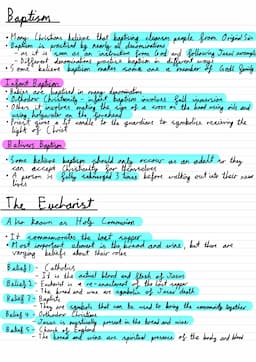 Baptism
• Many Christians believe that baptising cleanses people from Original Sin
• Baptism is practised by nearly all denominations
- as it is seen as an instruction from God and following Jesus' example
- Different denominations practise baptism in different ways
• Some believe baptism makes some one a member of God's family
Infant Baptism
• Babies are baptised in many denominations
• Orthodox Christianity - infant baptism involves full immersion
• Others it involves making the sign of a cross on the head using oils and
using holy water on the forehead
• Priest gives a lit candle to the guardians to symbolise receiving the
light of Christ
Believers Baptism
• Some believe baptism should only occur as an adult so they
can accept Christianity for themselves
• A person is fully submerged 3 times before walking out into their new
lives
The Eucharist
Also known as Holy Communion
• It commemorates the last supper
• Most important element is the bread and wine, but there are
varying beliefs about their roles
Belief 1 - Catholics
- It is the actual blood and flesh of Jesus
Belief 2 - Eucharist is a re-enactment of the last supper
- The bread and wine are symbols of Jesus' death
Belief 3 - Baptists
- They are symbols that can be used to bring the community together
Belief 4 - Orthodox Christians
- Jesus is mystically present in the bread and wine
Belief 5 - Church of England
- The bread and wine are spiritual presence of the body and blood